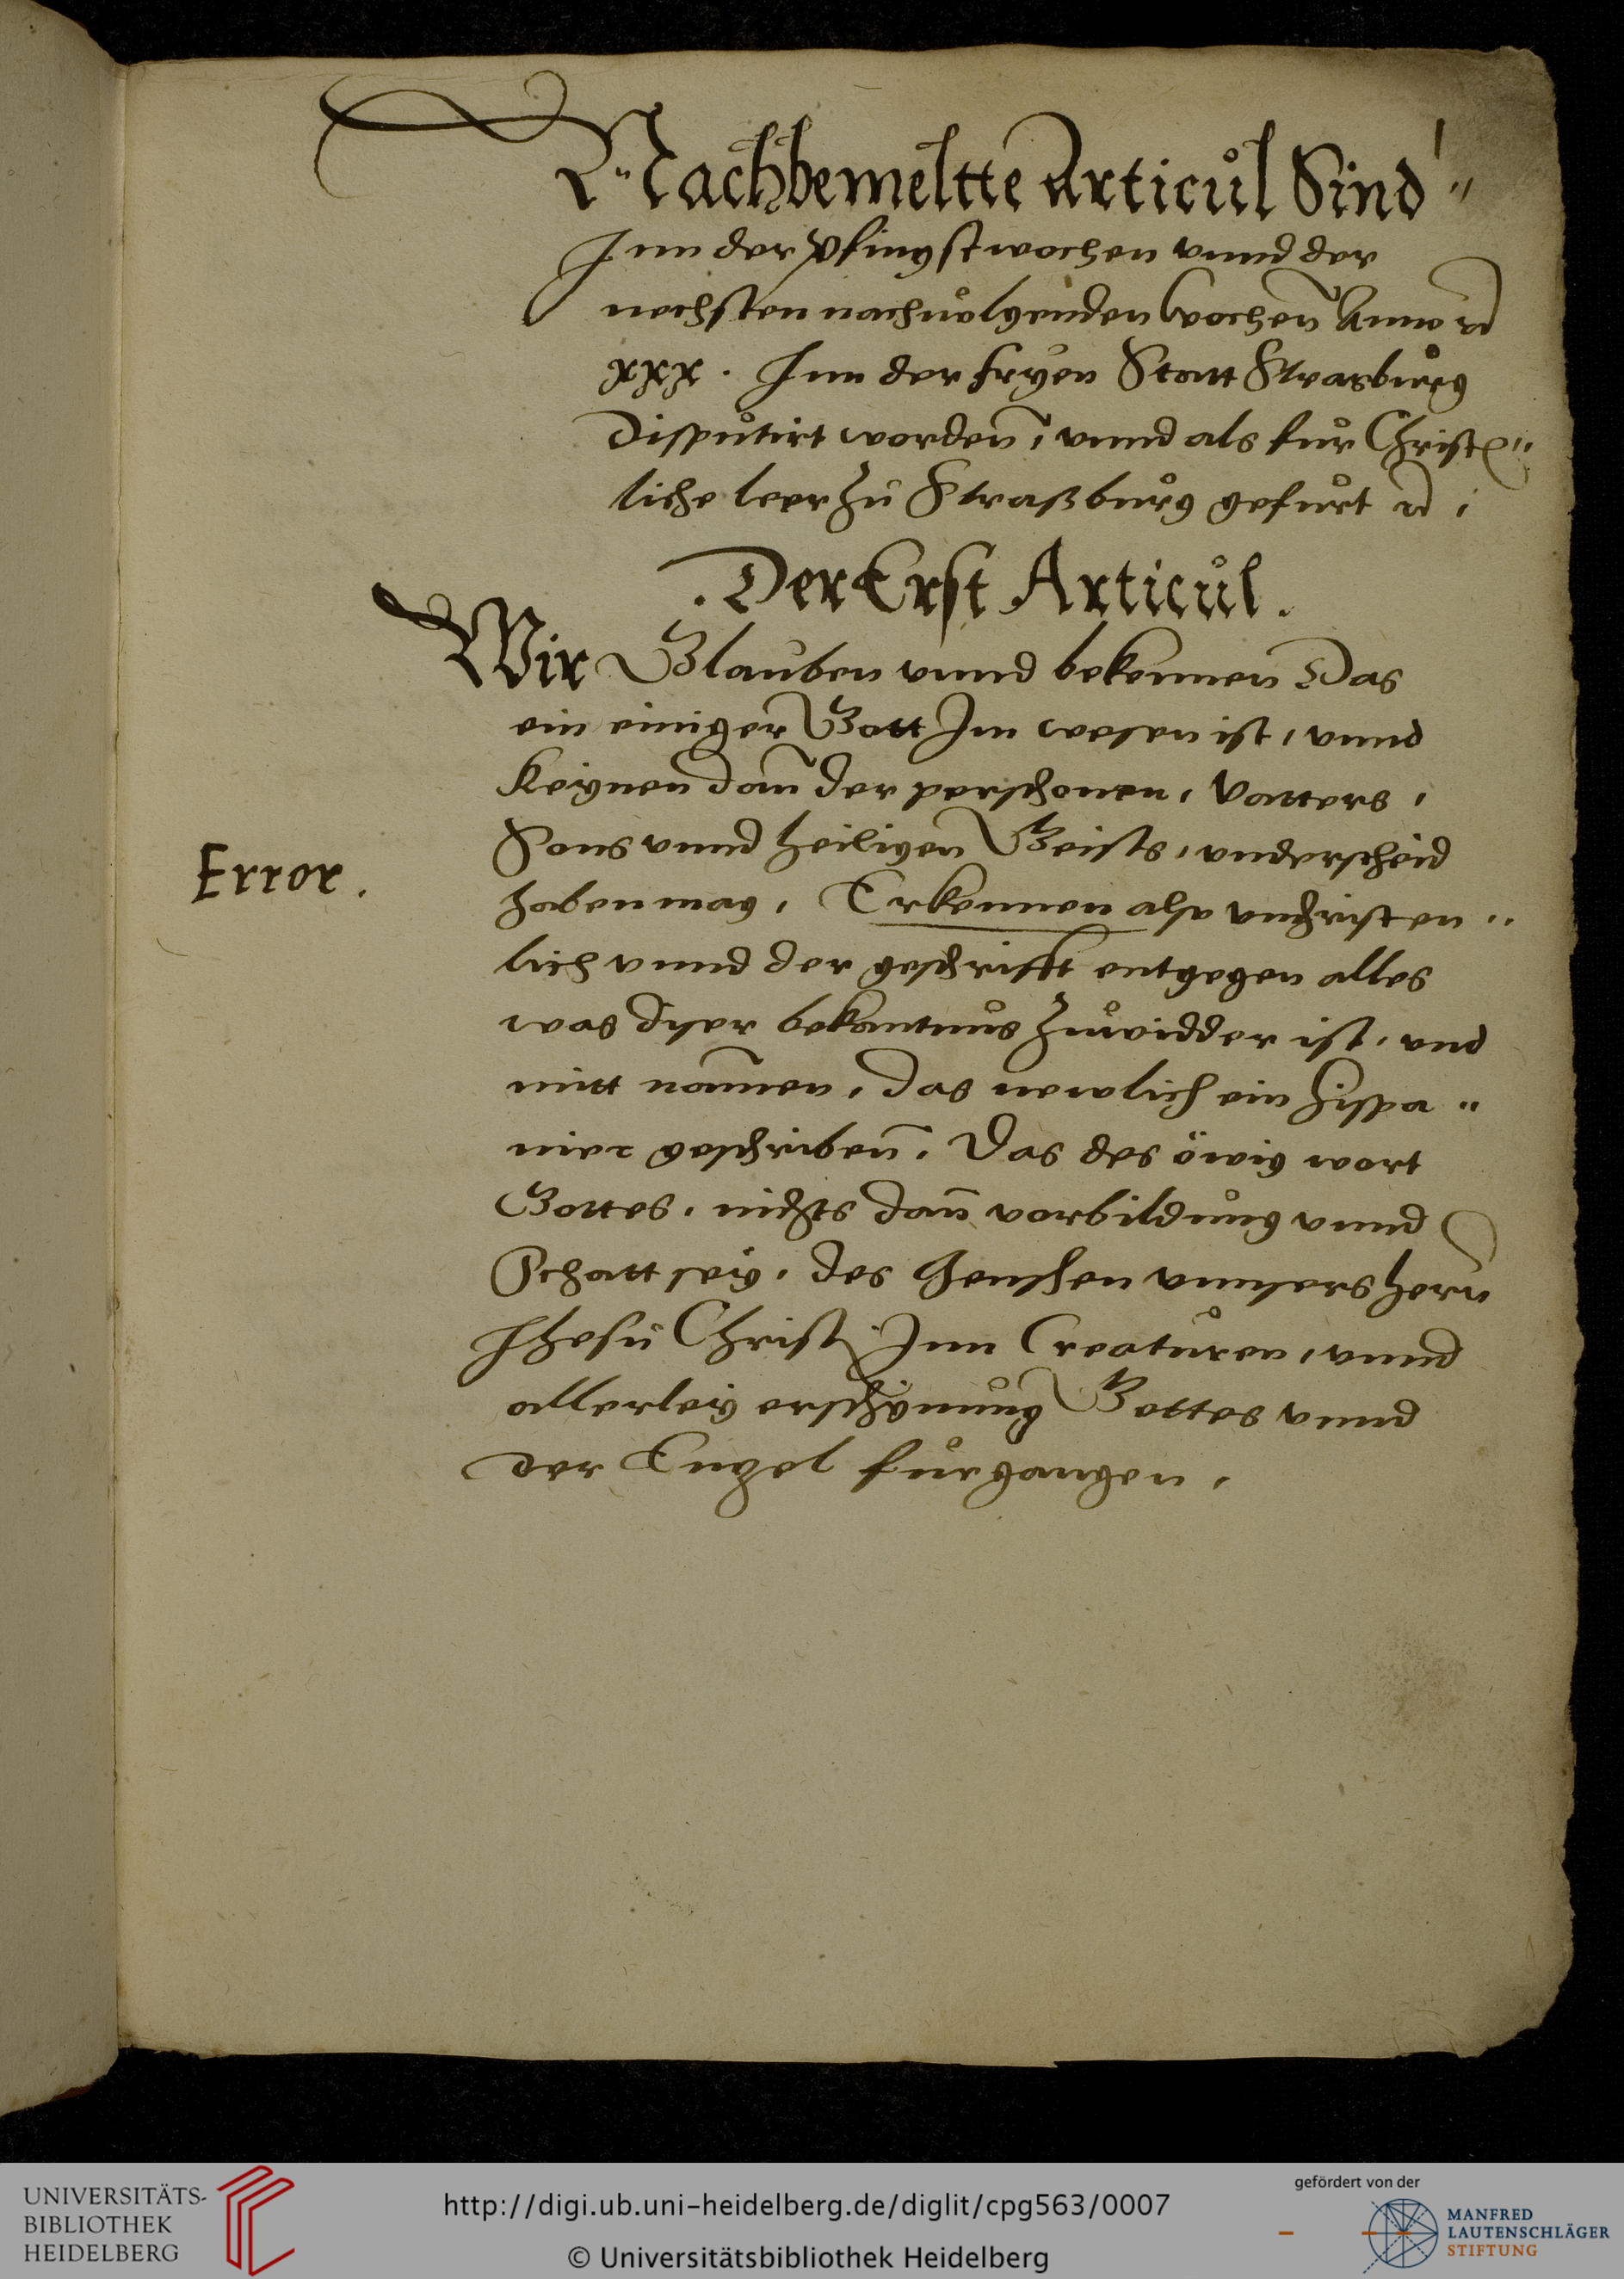 Nachbemeltte Articůl Sind
Inn der Pfingstwochen vnnd der
nechsten nachuolgenden wochen Anno ꝛc
xxx. Inn der fryen Statt Strasbůrg
Dispůtirt worden, vnnd als fůr Christ
liche leer zů Straßbůrg gefůrt ꝛc,
. Der Erst Articůl.
Wir Glauben vnnd bekennen Das
ein einiger Gott Im wesen ist, vnnd
keynen dann der perschonen, Vatters,
Sons vnnd heiligen Geists, vnderscheid
Error.
haben mag, Erkennen also vnchristen
lich vnnd der geschrifft entgegen alles
was diser bekantnůs zůwidder ist, vnd
mitt nammen, das newlich ein hispa
nier geschriben, Das des öwig wort
Gottes, nichts dann vorbildůng vnnd
Schatt sey, des Menschen vnnsers hern
Jhesů Christi Inn Creatůren, vnnd
allerley erschÿnůng Gottes vnnd
der Engel fůrgangen,
UNIVERSITÄTS-
BIBLIOTHEK
HEIDELBERG
http://digi.ub.uni-heidelberg.de/diglit/cpg563/0007
© Universitätsbibliothek Heidelberg
gefördert von der
MANFRED
LAUTENSCHLÄGER
STIFTUNG